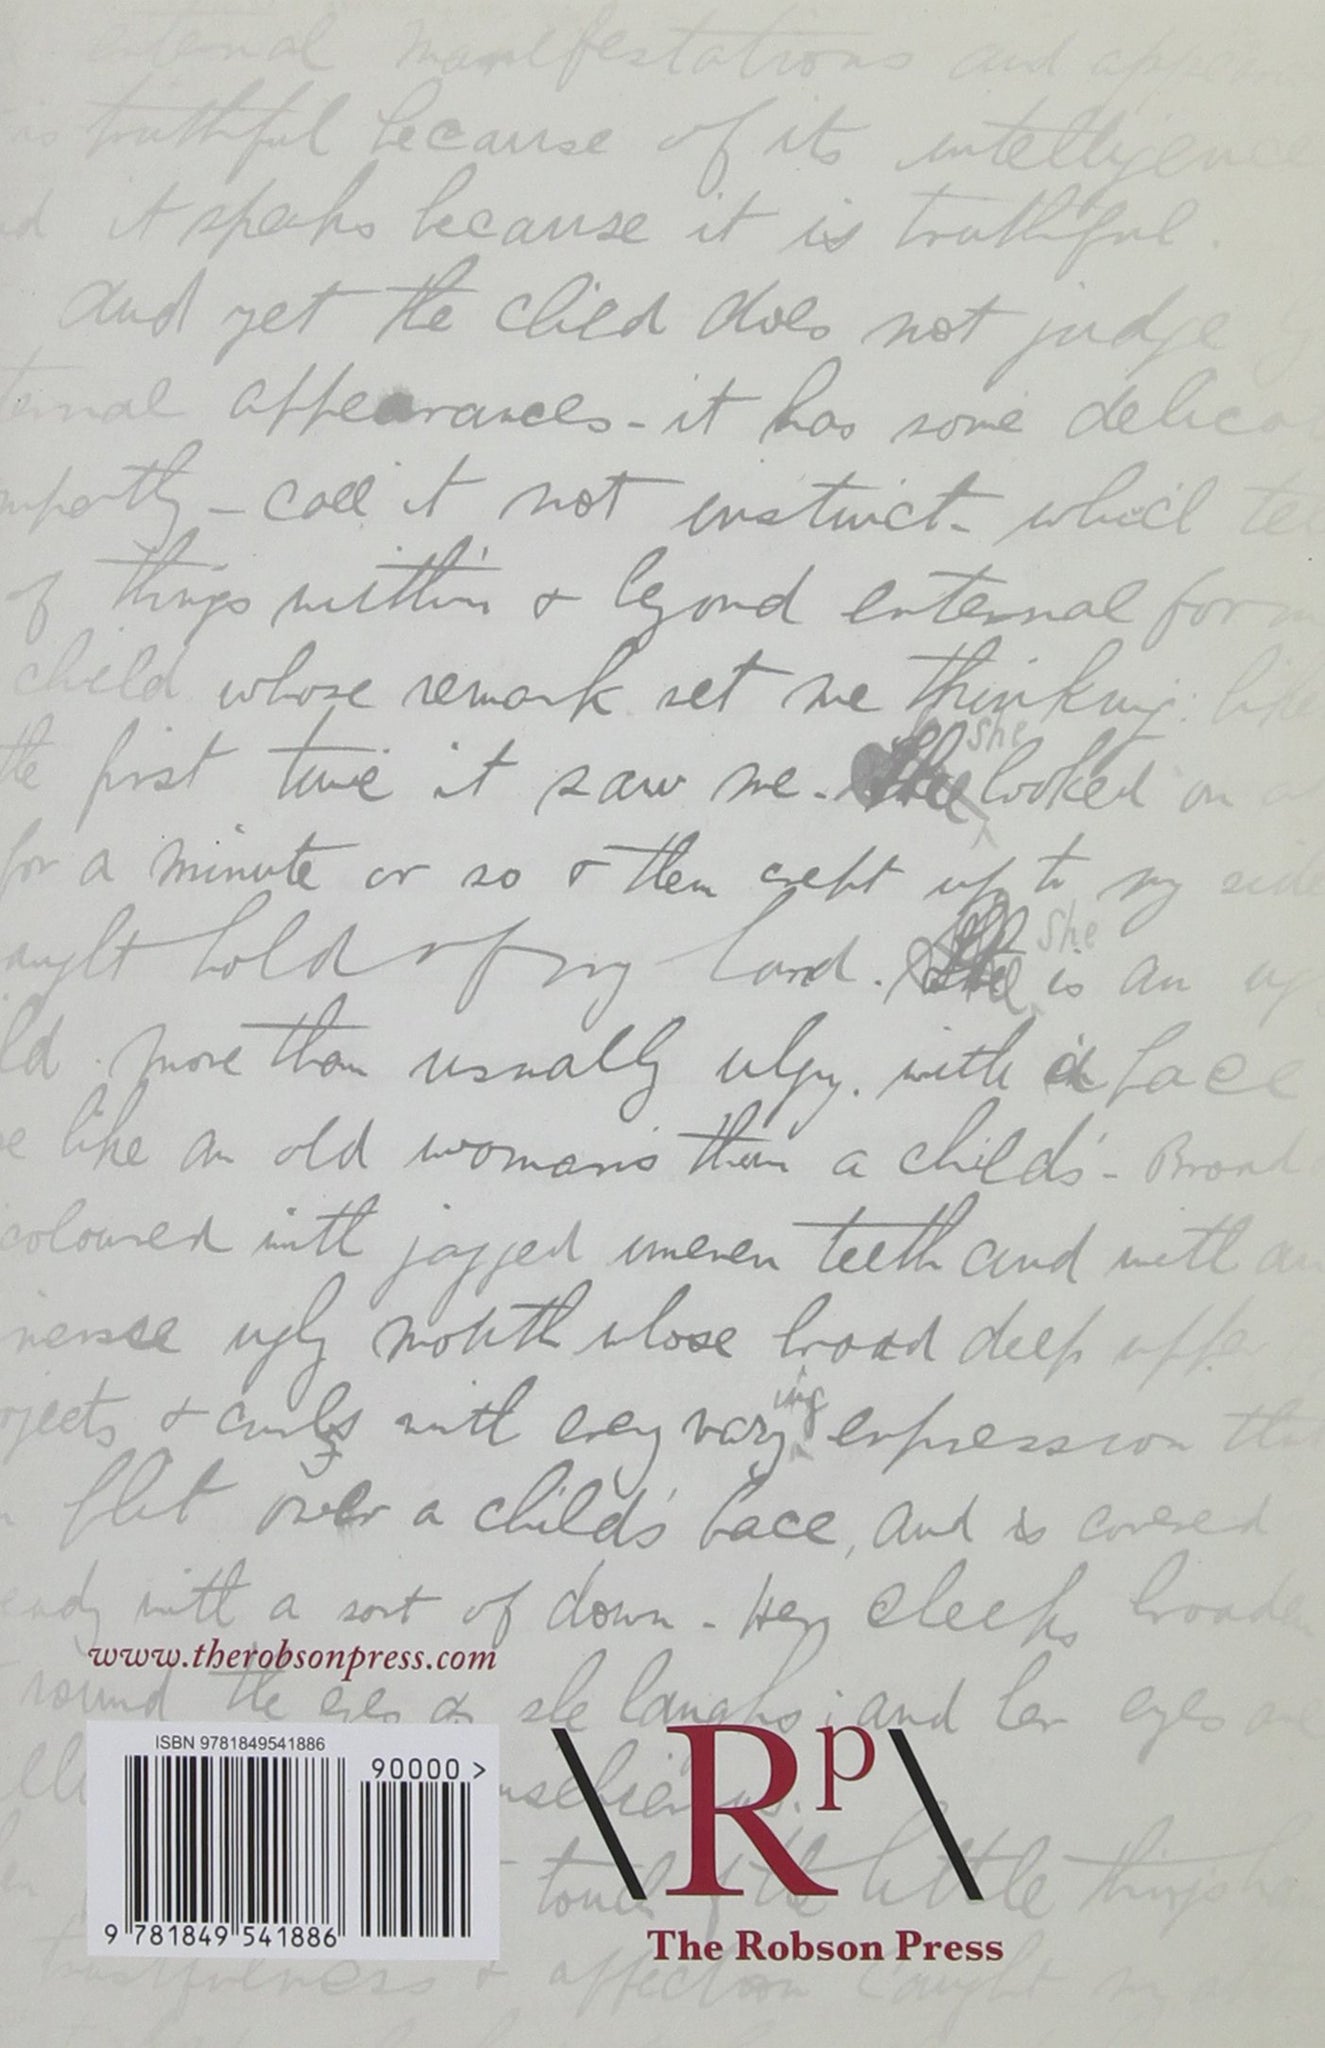 external manifestations and appear
is truthful because of its intelligence
it speaks because it is truthful.
And yet the child does not judge
ternal appearances - it has some delicat
mpathy - call it not instinct - which tel
of things within & beyond external form
child whose remark set me thinking. like
the first time it saw me. She looked on at
for a minute or so & then crept up to my side
aught hold of my hand. She is an ug
ld. more than usually ulgy. with a face
e like an old woman's than a child's - Broad
coloured with jagged uneven teeth and with an
mense ugly mouth whose broad deep upper
ojects & curls with every varying expression that
flit over a child's face, and is covered
eady with a sort of down - Her cheeks broaden
round the eyes as she laughs; and her eyes are
www.therobsonpress.com
ISBN 9781849541886
90000 >
9 781849 541886
\Rp\
The Robson Press
touch of the little things
trustfulness & affection caught my